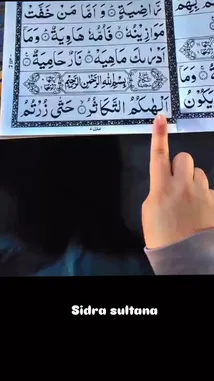 تَّرَاضِيَةٍ ۝ وَاَمَّا مَنْ خَفَّتْ
مَوَازِيْنُهٗ ۝ فَاُمُّهٗ هَاوِيَةٌ ۝ وَمَا
اَدْرٰىكَ مَاهِيَهْ ۝ نَارٌ حَامِيَةٌ ۝
بِسْمِ اللّٰهِ الرَّحْمٰنِ الرَّحِيْمِ
اَلْهٰىكُمُ التَّكَاثُرُ ۝ حَتّٰى زُرْتُمُ
Sidra sultana